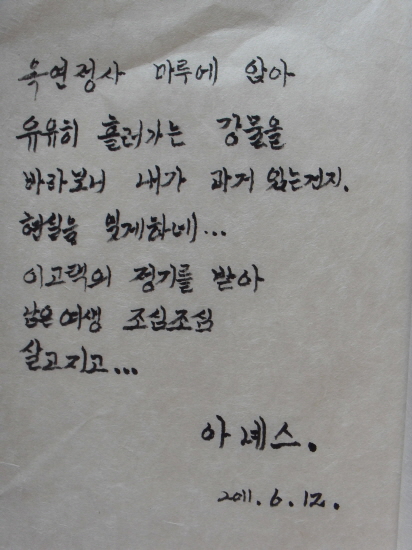 옥연정사 마루에 앉아
유유히 흘러가는 강물을
바라보니 내가 과거 있는건지.
현실을 잊게하네...
이고택의 정기를 받아
남은여생 조심조심
살고지고...
아네스.
2011.6.12.